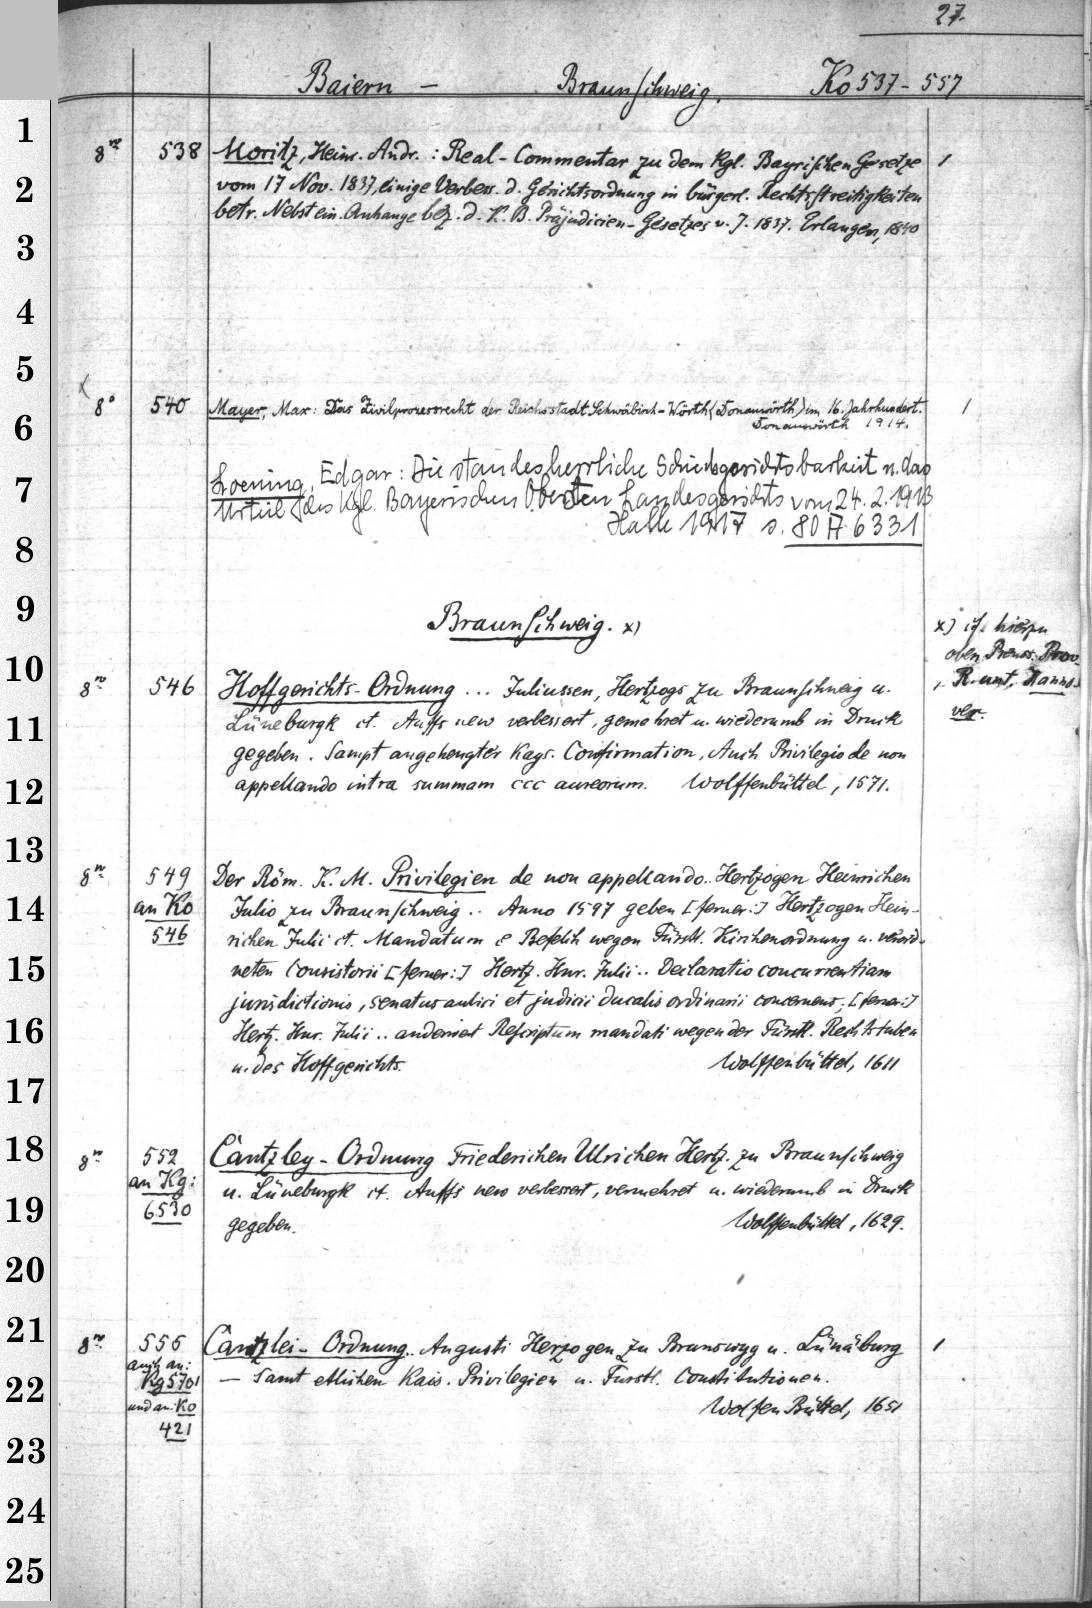 27.
Baiern — Braunschweig. Ko 537 - 557
1
8° 538 Moritz, Heinr. Andr.: Real-Commentar zu dem Kgl. Bayrischen Gesetze 1
2
vom 17 Nov. 1837, einige Verbess. d. Gerichtsordnung in bürgerl. Rechtsstreitigkeiten
betr. Nebst ein. Anhange bez. d. K. B. Präjudicien-Gesetzes v. J. 1837. Erlangen, 1840
3
4
5
8° 540 Mayer, Max: Das Zivilprozessrecht der Reichsstadt Schwäbisch-Wörth (Donauwörth) im 16. Jahrhundert. 1
6
Donauwörth 1914.
Loening, Edgar: Die standesherrliche Schiedsgerichtsbarkeit u. das
7
Urteil des Kgl. Bayerischen Obersten Landesgerichts vom 24. 2. 1913
Halle 1917 s. 80 A 6331
8
9
Braunschweig. x)
x) s. hierzu
oben Preuss. Prov.
10
R. unt. Hannover.
8° 546 Hoffgerichts-Ordnung ... Juliussen, Hertzogs zu Braunschweig u.
11
Lüneburgk et. Auffs new verbessert, gemehret u. wiederumb in Druck
gegeben. Sampt angehengter Kays. Confirmation, Auch Privilegio de non
12
appellando intra summam ccc aureorum. Wolffenbüttel, 1571.
13
8° 549 Der Röm. K. M. Privilegien de non appellando.. Hertzogen Heinrichen
14
an Ko Julio zu Braunschweig .. Anno 1597 geben [ferner:] Hertzogen Hein-
546 richen Julii et. Mandatum e Befelih wegen Fürstl. Kirchenordnung u. verord-
15
neten Consistorii [ferner:] Hertz. Hnr. Julii .. Declaratio concurrentiam
jurisdictionis, senatus aulici et judicii ducalis ordinarii concernens, [ferner:]
16
Hertz. Hnr. Julii .. anderweit Rescriptum mandati wegen der Fürstl. Rechtstuben
u. des Hoffgerichts. Wolffenbüttel, 1611
17
18
8° 552 Cantzley-Ordnung Friederichen Ulrichen Hertz. zu Braunschweig
an Kg: u. Lüneburgk et. Auffs new verbessert, vermehret u. wiederumb in Druck
19
6530 gegeben. Wolffenbüttel, 1629.
20
21
8° 556 Cantzlei-Ordnung.. Augusti Herzogen zu Brunswyg u. Lünäburg 1
auch an:
22
Kg 5701 — Samt etlichen Kais. Privilegien u. Fürstl. Constitutionen.
und an: Ko Wolfen Büttel, 1651
421
23
24
25